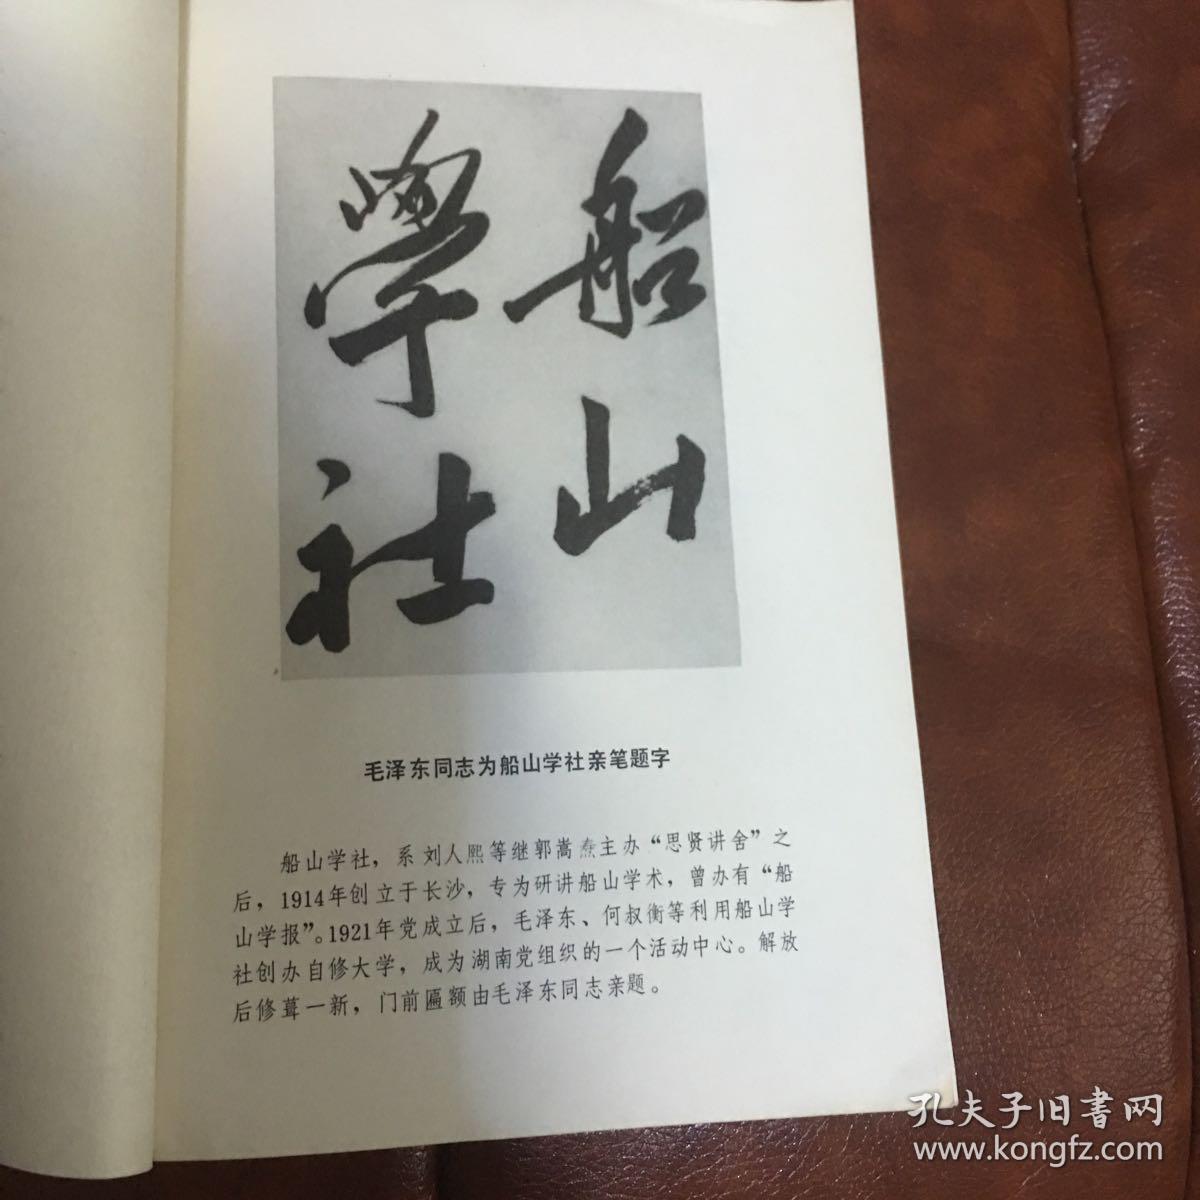 船山
學社
毛泽东同志为船山学社亲笔题字
船山学社，系刘人熙等继郭嵩焘主办“思贤讲舍”之
后，1914年创立于长沙，专为研讲船山学术，曾办有“船
山学报”。1921年党成立后，毛泽东、何叔衡等利用船山学
社创办自修大学，成为湖南党组织的一个活动中心。解放
后修葺一新，门前匾额由毛泽东同志亲题。
孔夫子旧書网
www.kongfz.com